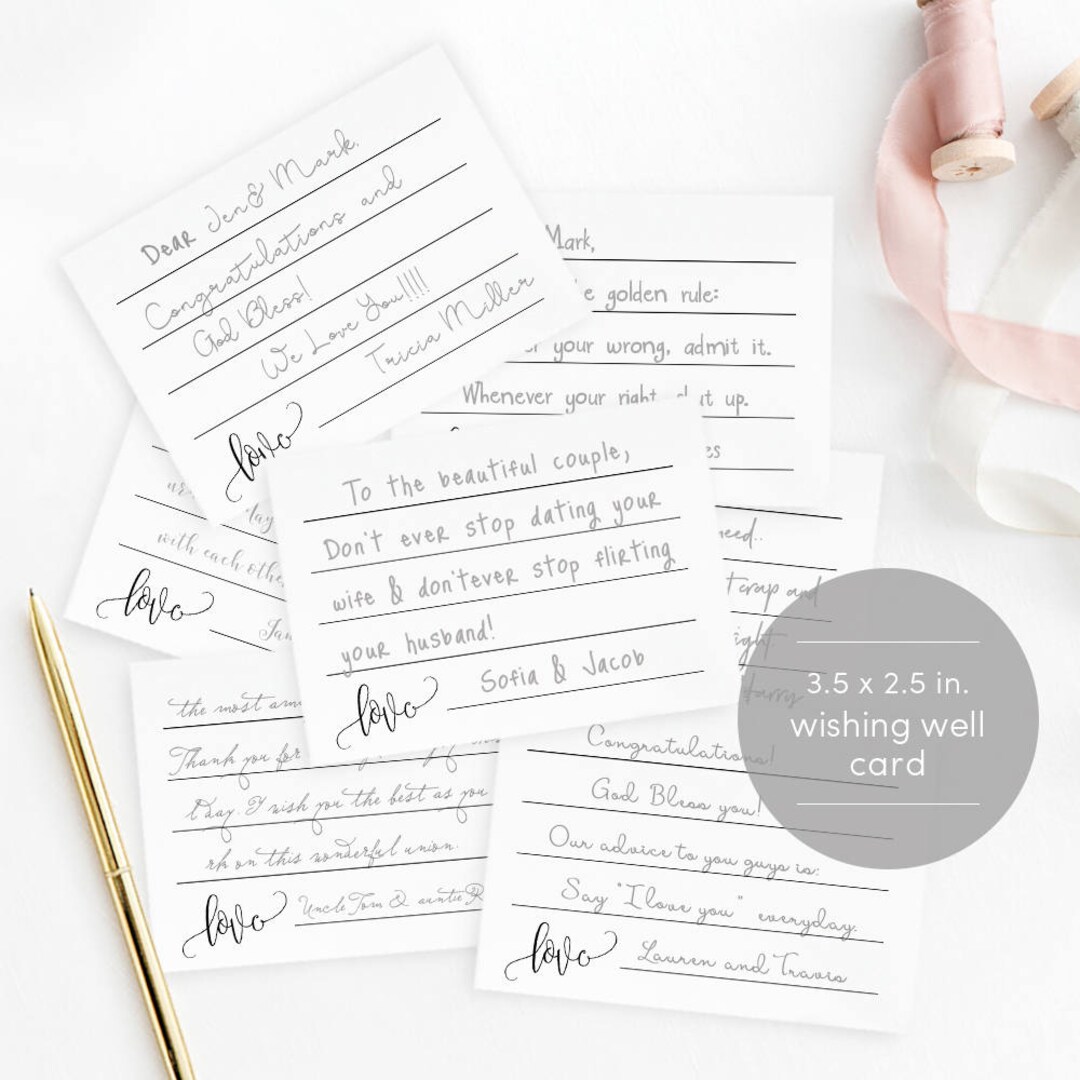 Dear Jen & Mark,
Congratulations and
God Bless!
We Love You!!!!
Tricia Miller
love
Mark,
golden rule:
your wrong, admit it.
Whenever your right, shut up.
with each other
love
To the beautiful couple,
Don't ever stop dating your
wife & don'tever stop flirting
your husband!
love Sofia & Jacob
need..
crap and
3.5 x 2.5 in.
wishing well
card
the most
Thank you for
day. I wish you the best as you
on this wonderful union.
love Uncle Tom & auntie R
Congratulations!
God Bless you!
Our advice to you guys is:
Say "I love you" everyday.
love Lauren and Travis